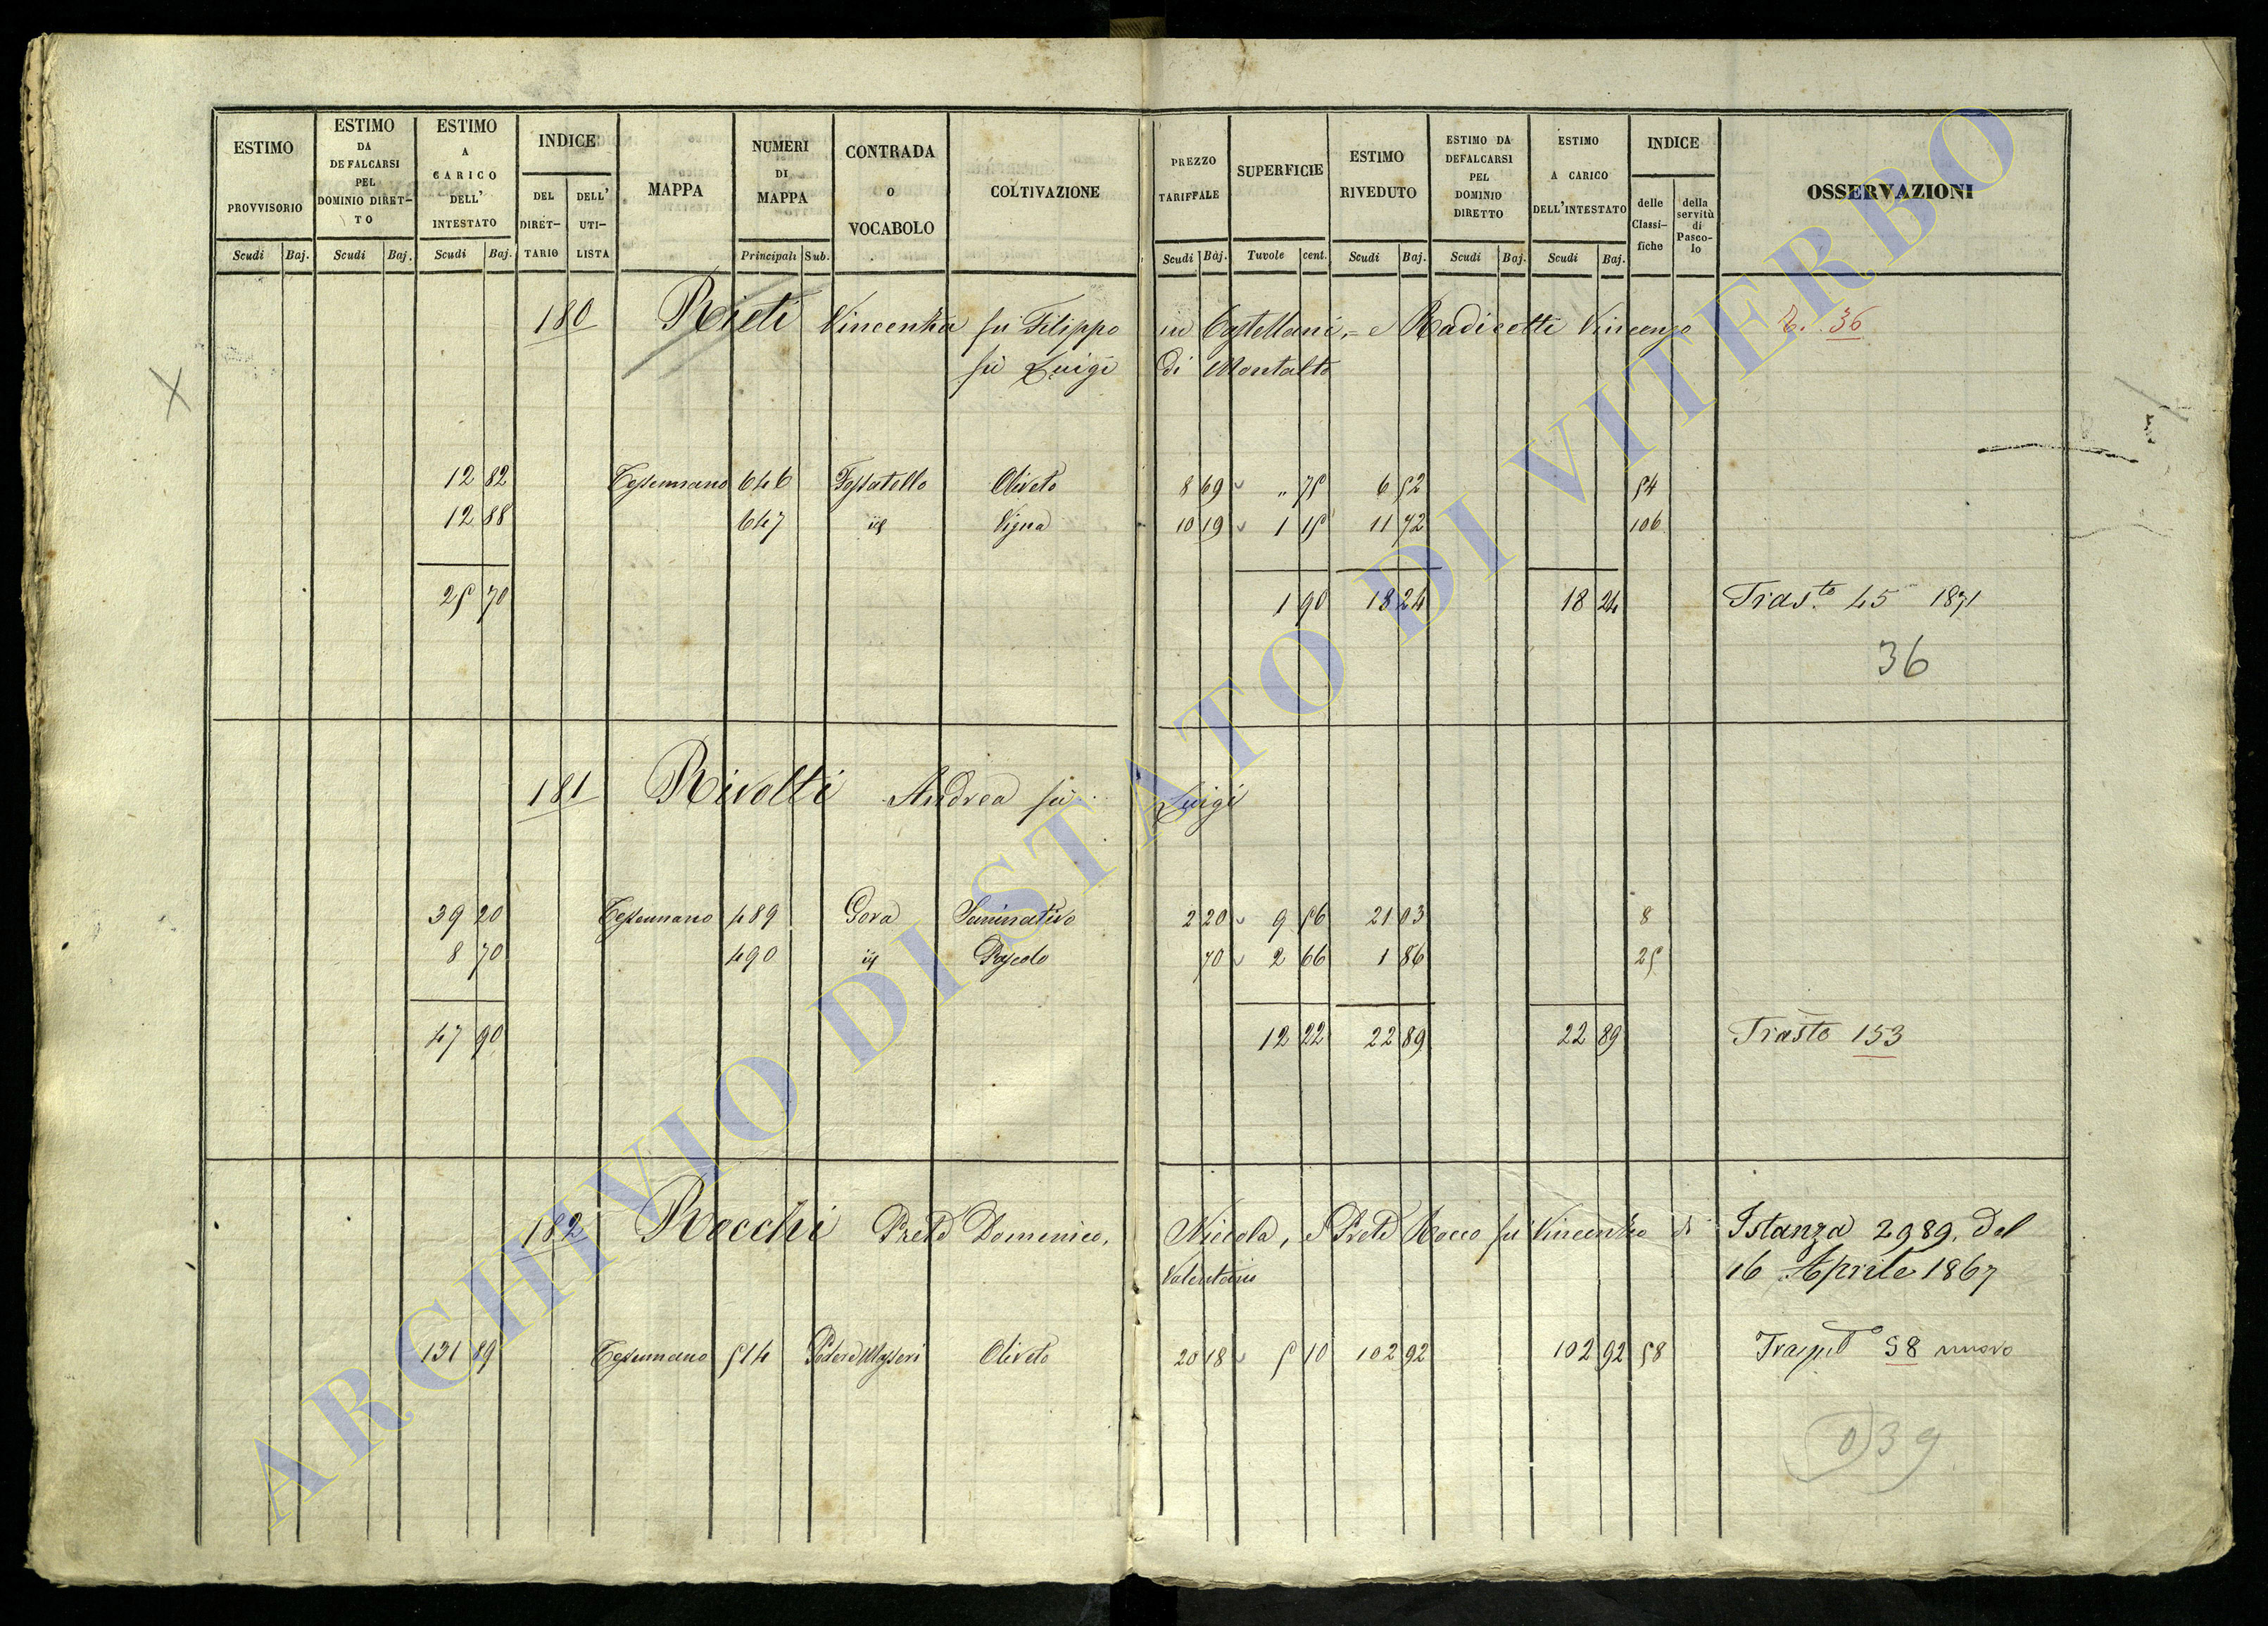 ESTIMO PROVVISORIO
Scudi Baj.
ESTIMO DA DEFALCARSI PEL DOMINIO DIRET-TO
Scudi Baj.
ESTIMO A CARICO DELL' INTESTATO
Scudi Baj.
INDICE
DEL DIRET-TARIO
DELL' UTI-LISTA
MAPPA
NUMERI DI MAPPA
Principali Sub.
CONTRADA o VOCABOLO
COLTIVAZIONE
PREZZO TARIFFALE
Scudi Baj.
SUPERFICIE
Tavole cent.
ESTIMO RIVEDUTO
Scudi Baj.
ESTIMO DA DEFALCARSI PEL DOMINIO DIRETTO
Scudi Baj.
ESTIMO A CARICO DELL'INTESTATO
Scudi Baj.
INDICE
delle Classi-fiche
della servitù di Pasco-lo
OSSERVAZIONI
180 Rieti Vincenza fu Filippo in Castellani, = e Radicetti Vincenzo T. 36
fu Luigi di Montalto
12 82 Tessennano 646 Fossatello Oliveto 8 69 " 75 6 52 54
12 88 647 id Vigna 10 19 1 15 11 72 106
25 70 1 90 18 24 18 24 Tras.to 45 1871
36
181 Rivolti Andrea fu Luigi
39 20 Tessennano 489 Gora Seminativo 2 20 9 56 21 03 8
8 70 490 id Pascolo 70 2 66 1 86 25
47 90 12 22 22 89 22 89 Trasto 153
182 Rocchi Prete Domenico, Niccola, e Prete Rocco fu Vincenzo di Istanza 2989. del
Valentano 16 Aprile 1867
131 89 Tessennano 514 Oliveto 20 18 5 10 102 92 102 92 58 58 nuovo
39
ARCHIVIO DI STATO DI VITERBO